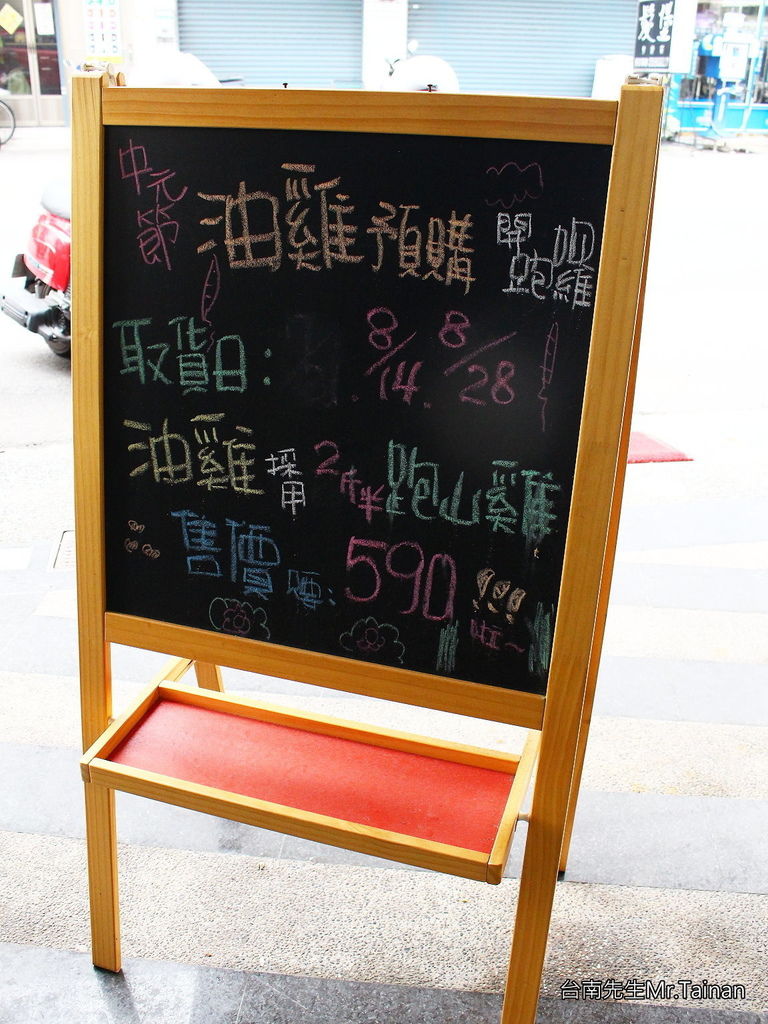 中元節
油雞預購
開跑囉
取貨日：
8/14. 8/28
油雞採用2斤半跑山雞
售價
590
!!!
啦~
髮堡
台南先生Mr.Tainan